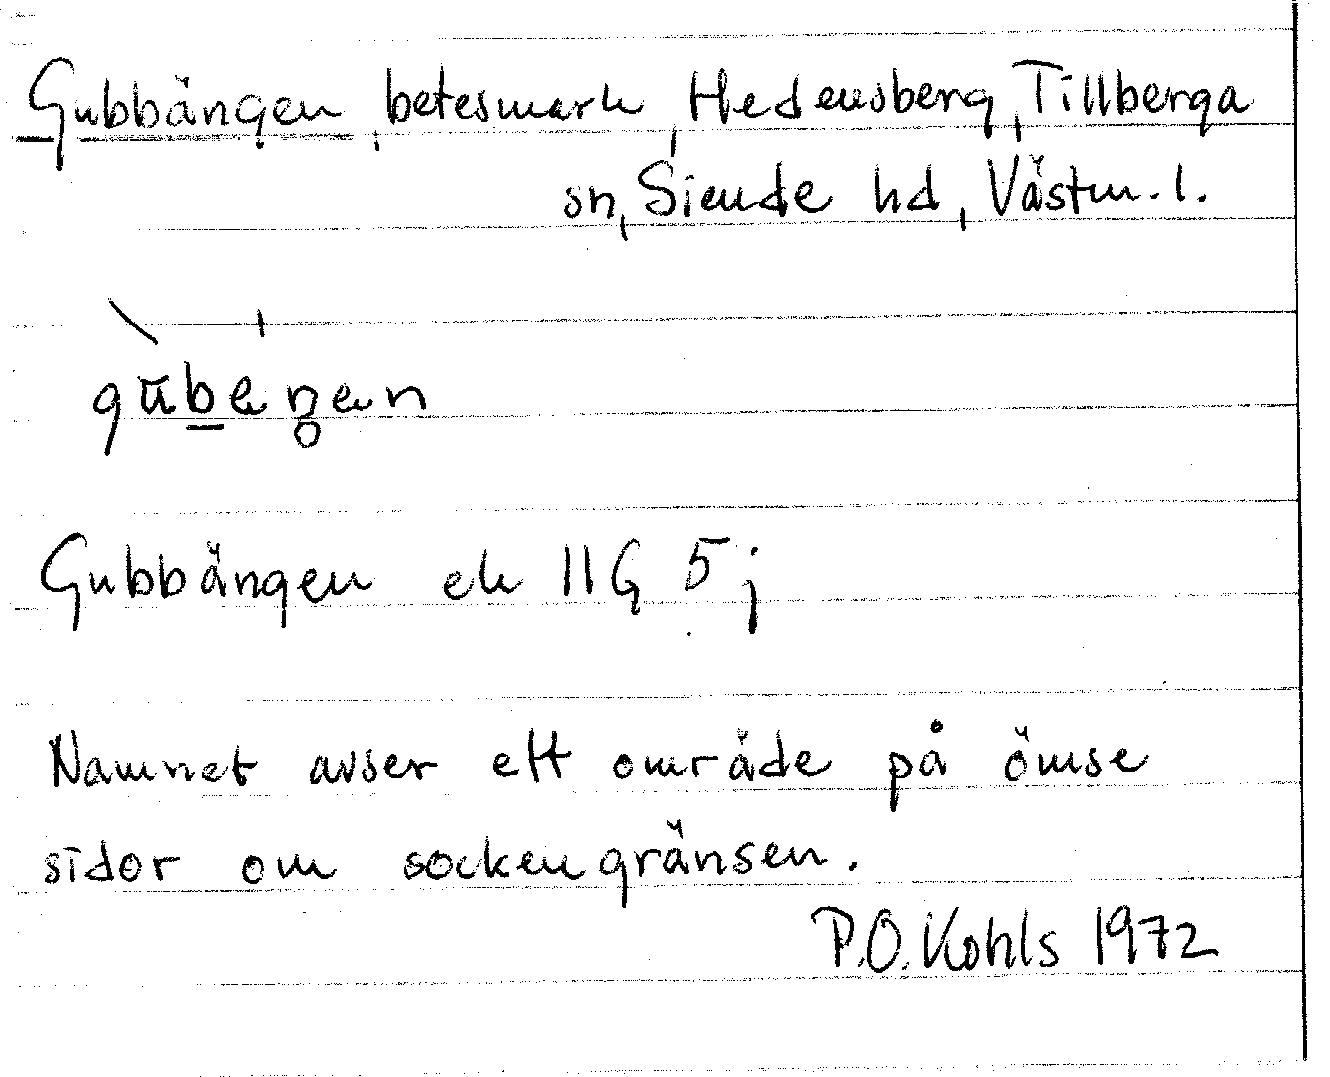 Gubbängen, betesmark, Hedensberg, Tillberga
sn, Siende hd, Västm. l.
Gubbängen ek 11G 5j
Namnet avser ett område på ömse
sidor om sockengränsen.
P.O. Kohls 1972